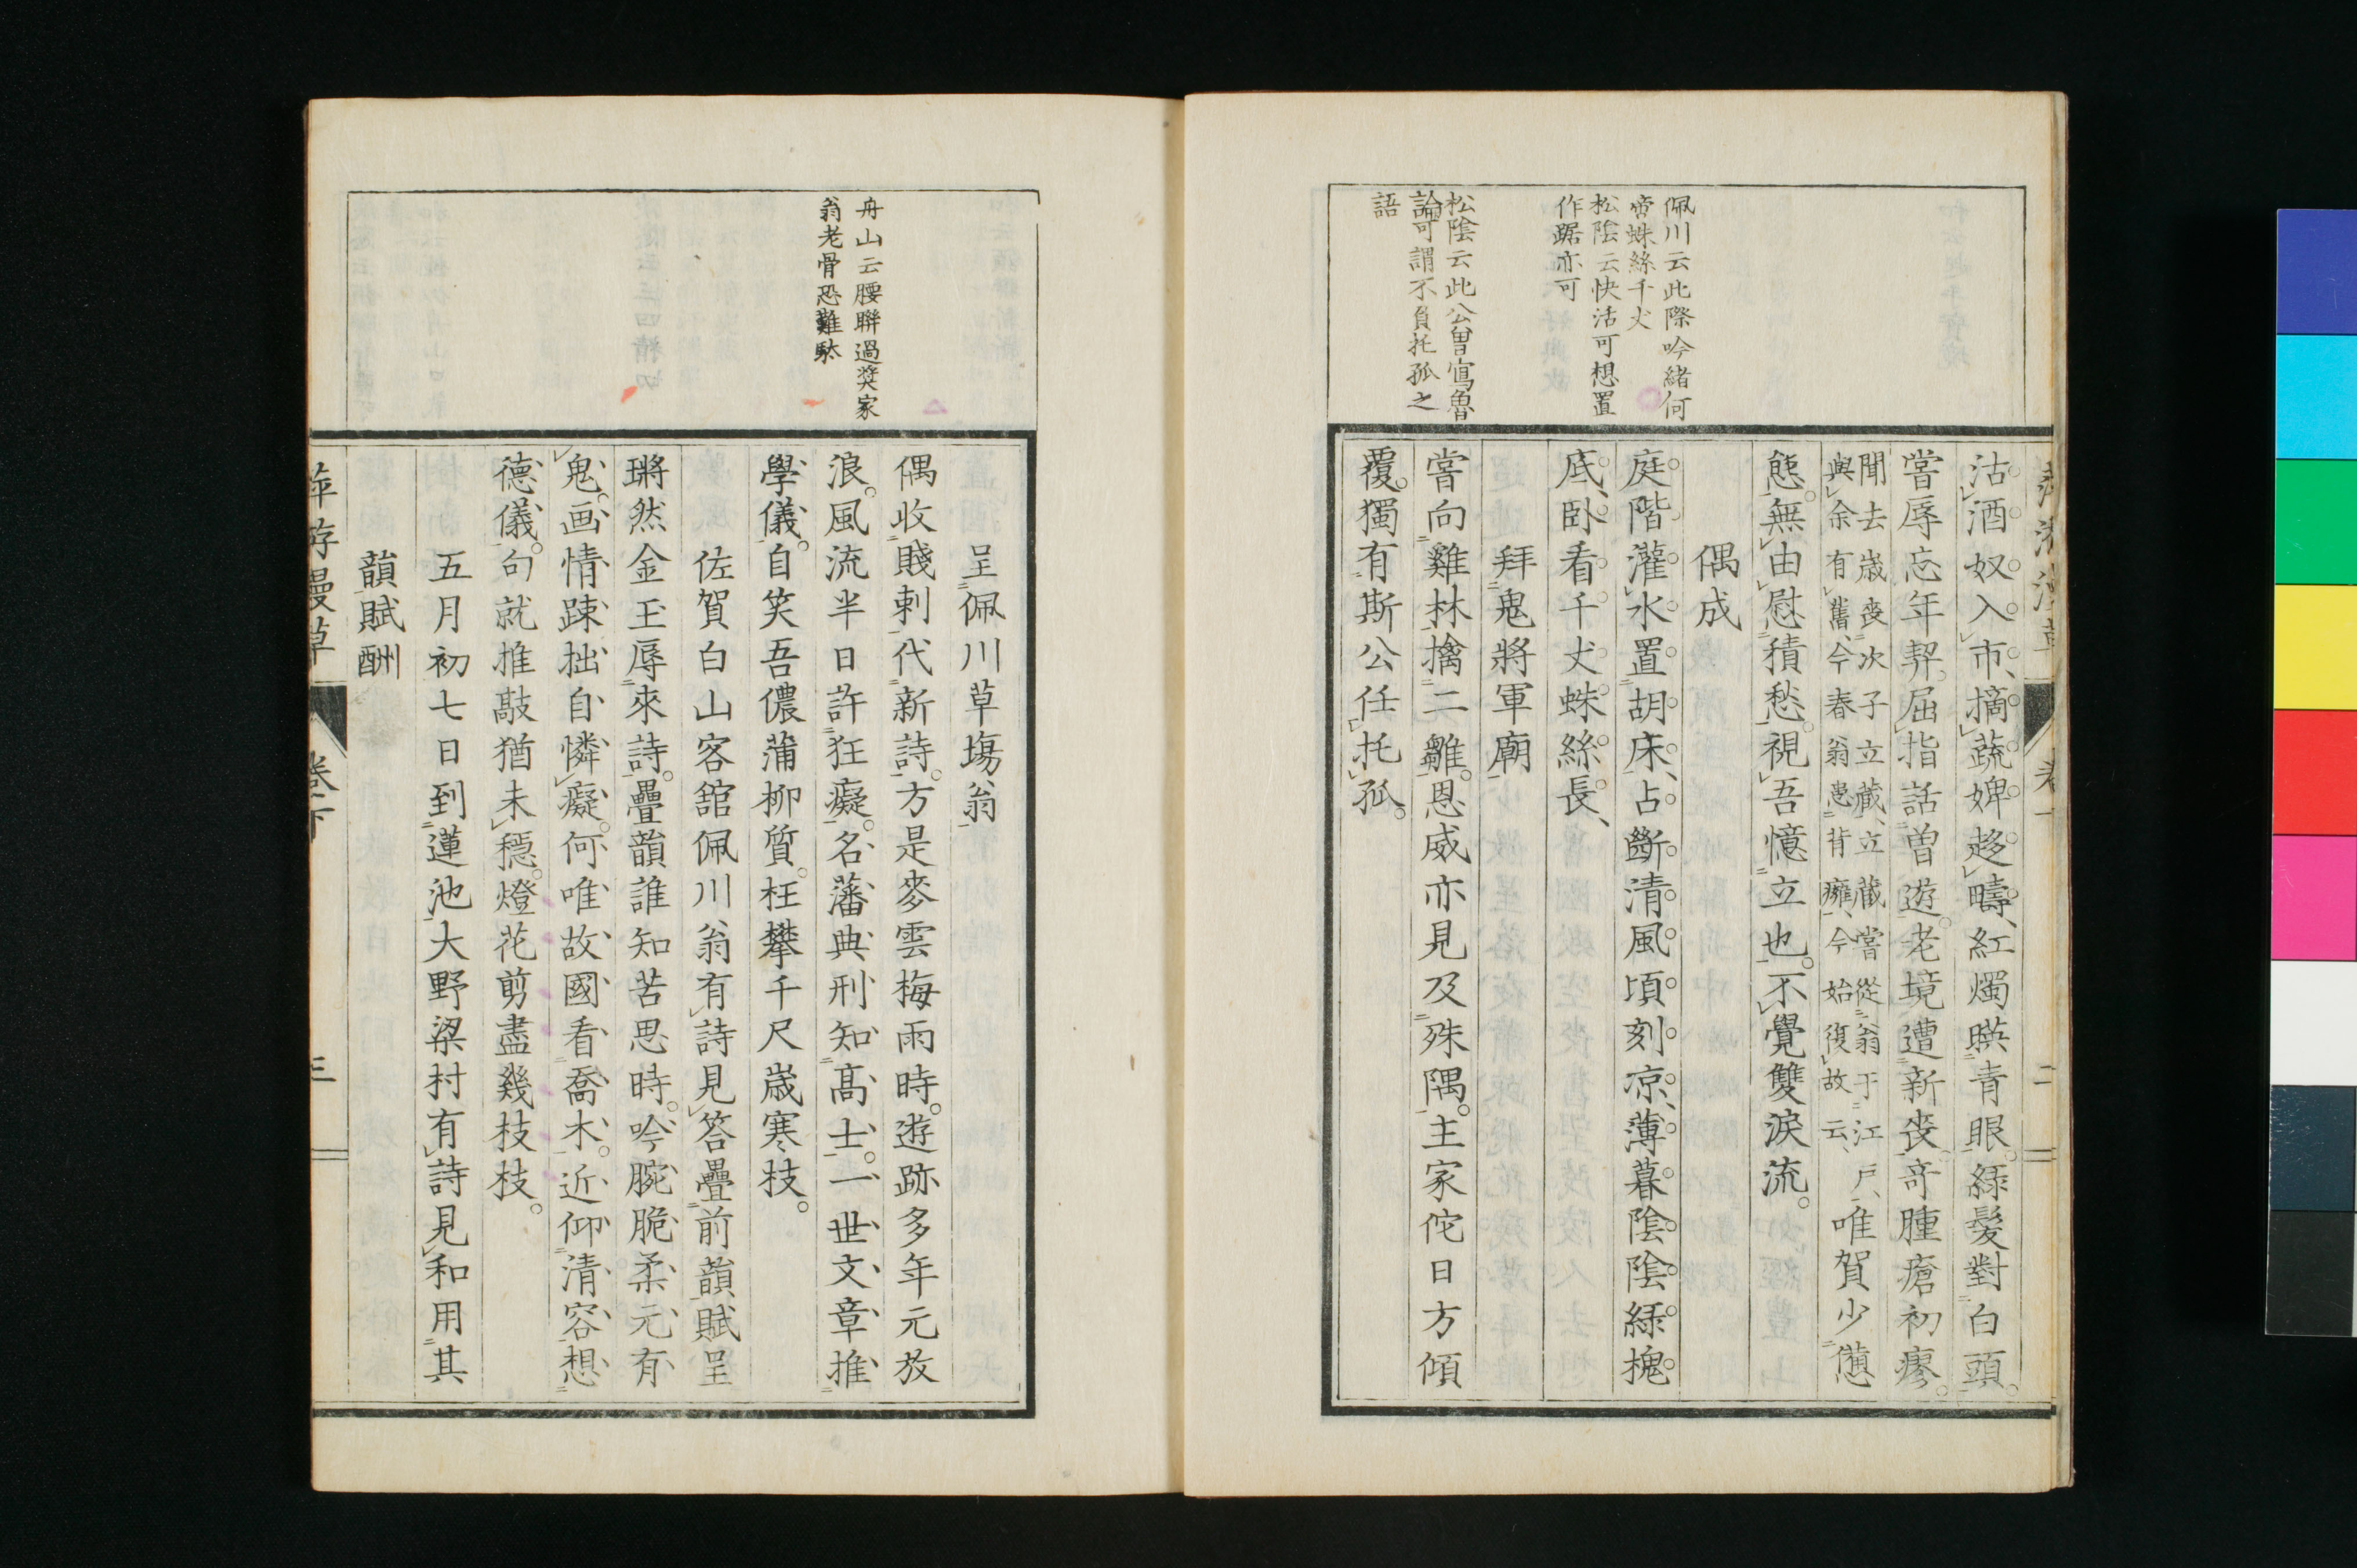 佩川云此際吟緒何
啻蛛絲千丈
松陰云快活可想置
作踞亦可
松陰云此公曽寫魯
論可謂不負托孤之
語
沽酒奴入市摘蔬婢趍疇紅燭暎青眼綠髮對白頭
嘗辱忘年契屈指話曽遊老境遭新喪奇腫瘡初瘳
聞去歳喪次子立蔵立蔵嘗從翁于江戸唯賀少愆
與余有舊今春翁患背癰今始復故云
態無由慰積愁視吾憶立也不覺雙淚流
偶成
庭階灌水置胡床占斷清風頃刻凉薄暮陰陰綠槐
底卧看千丈蛛絲長
拜鬼將軍廟
嘗向雞林擒二雛恩威亦見及殊隅主家佗日方傾
覆獨有斯公任托孤
卷下
二
舟山云腰聯過奨家
翁老骨恐難馱
呈佩川草塲翁
偶收賤刺代新詩方是麥雲梅雨時遊跡多年元放
浪風流半日許狂癡名藩典刑知髙士一世文章推
學儀自笑吾儂蒲柳質枉攀千尺歳寒枝
佐賀白山客舘佩川翁有詩見答疊前韻賦呈
瑺然金玉辱來詩疊韻誰知苦思時吟腕脆柔元有
鬼画情踈拙自憐癡何唯故國看喬木近仰清容想
德儀句就推敲猶未穩燈花剪盡幾枝枝
五月初七日到蓮池大野梁村有詩見和用其
韻賦酬
萍游漫草
卷下
三